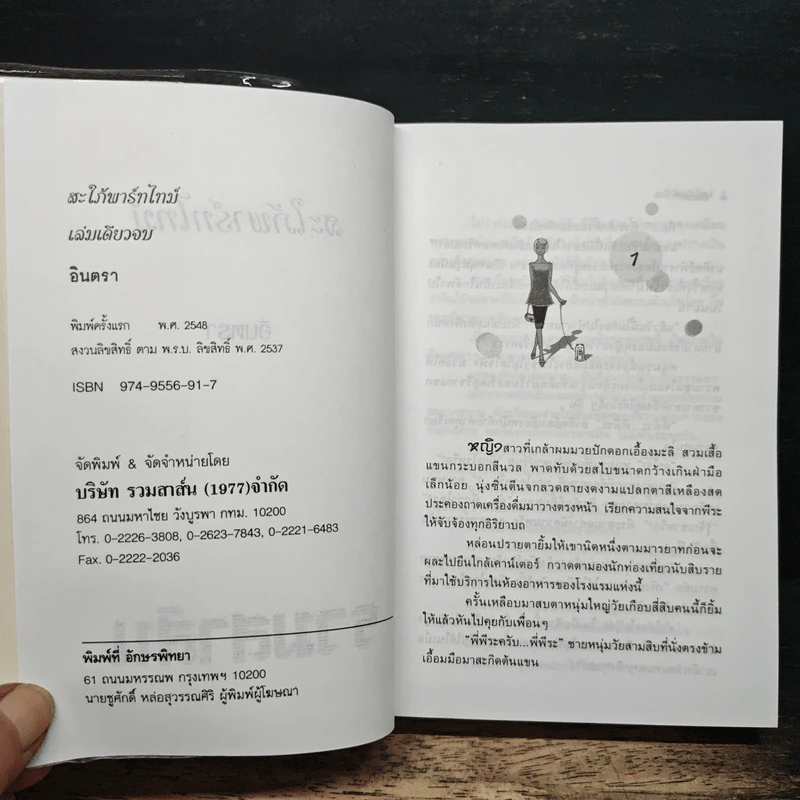 สะใภ้พาร์ทไทม์
เล่มเดียวจบ
อินตรา
พิมพ์ครั้งแรก พ.ศ. 2548
สงวนลิขสิทธิ์ ตาม พ.ร.บ. ลิขสิทธิ์ พ.ศ. 2537
ISBN 974-9556-91-7
จัดพิมพ์ & จัดจำหน่ายโดย
บริษัท รวมสาส์น (1977)จำกัด
864 ถนนมหาไชย วังบูรพา กทม. 10200
โทร. 0-2226-3808, 0-2623-7843, 0-2221-6483
Fax. 0-2222-2036
พิมพ์ที่ อักษรพิทยา
61 ถนนมหรรณพ กรุงเทพฯ 10200
นายชูศักดิ์ หล่อสุวรรณศิริ ผู้พิมพ์ผู้โฆษณา
1
หญิงสาวที่เกล้าผมมวยปักดอกเอื้องมะลิ สวมเสื้อ
แขนกระบอกสีนวล พาดทับด้วยสไบขนาดกว้างเกินฝ่ามือ
เล็กน้อย นุ่งซิ่นตีนจกลวดลายงดงามแปลกตาสีเหลืองสด
ประคองถาดเครื่องดื่มมาวางตรงหน้า เรียกความสนใจจากพีระ
ให้จับจ้องทุกอิริยาบถ
หล่อนปรายตายิ้มให้เขานิดหนึ่งตามมารยาทก่อนจะ
ผละไปยืนใกล้เคาน์เตอร์ กวาดตามองนักท่องเที่ยวนับสิบราย
ที่มาใช้บริการในห้องอาหารของโรงแรมแห่งนี้
ครั้นเหลือบมาสบตาหนุ่มใหญ่วัยเกือบสี่สิบคนนี้ก็ยิ้ม
ให้แล้วหันไปคุยกับเพื่อนๆ
"พี่พีระครับ...พี่พีระ" ชายหนุ่มวัยสามสิบที่นั่งตรงข้าม
เอื้อมมือมาสะกิดต้นแขน